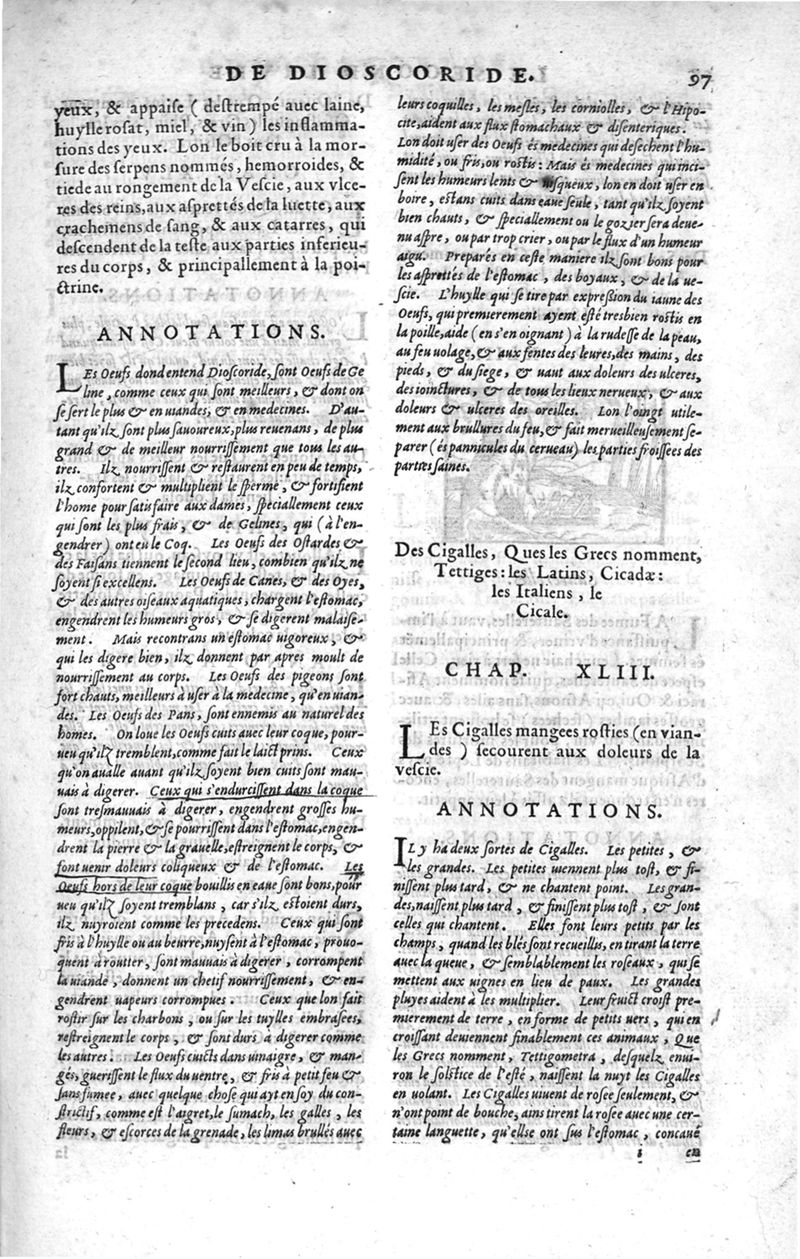 DE DIOSCORIDE.
97
yeux, & appaise ( destrempé auec laine,
huylle rosat, miel, & vin ) les inflamma-
tions des yeux. Lon le boit cru à la mor-
sure des serpens nommés, hemorroides, &
tiede au rongement de la Vescie, aux vlce-
res des reins, aux asprettés de la luette, aux
crachemens de sang, & aux catarres, qui
descendent de la teste aux parties inferieu-
res du corps, & principallement à la poi-
ctrine.
ANNOTATIONS.
LEs Oeufs dond entend Dioscoride, sont Oeufs de Ge
line, comme ceux qui sont meilleurs, & dont on
se sert le plus & en uiandes, & en medecines. D'au-
tant qu'ilz sont plus sauoureux, plus reuenans, de plus
grand & de meilleur nourrissement que tous les au-
tres. Ilz nourrissent & restaurent en peu de temps,
ilz confortent & multiplient le sperme, & fortifient
l'home pour satisfaire aux dames, speciallement ceux
qui sont les plus frais, & de Gelines, qui ( à l'en-
gendrer ) ont eu le Coq. Les Oeufs des Ostardes &
des Faisans tiennent le second lieu, combien qu'ilz ne
soyent si excellens. Les Oeufs de Canes, & des Oyes,
& des autres oiseaux aquatiques, chargent l'estomac,
engendrent les humeurs gros, & se digerent malaise-
ment. Mais recontrans un estomac uigoreux, &
qui les digere bien, ilz donnent par apres moult de
nourrissement au corps. Les Oeufs des pigeons sont
fort chauts, meilleurs à user à la medecine, qu'en uian-
des. Les Oeufs des Pans, sont ennemis au naturel des
homes. On loue les Oeufs cuits auec leur coque, pour-
ueu qu'ilz tremblent, comme fait le laict prins. Ceux
qu'on aualle auant qu'ilz soyent bien cuits sont mau-
uais à digerer. Ceux qui s'endurcissent dans la coque
sont tresmauuais à digerer, engendrent grosses hu-
meurs, oppilent, & se pourrissent dans l'estomac, engen-
drent la pierre & la grauelle, estreignent le corps, &
font uenir doleurs coliqueux & de l'estomac. Les
Oeufs hors de leur coque bouillis en eaue sont bons, pour
ueu qu'ilz soyent tremblans, car s'ilz estoient durs,
ilz nuyroient comme les precedens. Ceux qui sont
fris à l'huylle ou au beurre, nuysent à l'estomac, prouo-
quent à routter, sont mauuais à digerer, corrompent
la uiande, donnent un chetif nourrissement, & en-
gendrent uapeurs corrompues. Ceux que lon fait
rostir sur les charbons, ou sur les tuylles embrasees,
restreignent le corps, & sont durs à digerer comme
les autres. Les Oeufs cuicts dans uinaigre, & man-
gés, guerissent le flux du uentre, & fris à petit feu &
sans fumee, auec quelque chose qui ayt en soy du con-
strictif, comme est l'aigret, le sumach, les galles, les
fleurs, & escorces de la grenade, les limas brullés auec
leurs coquilles, les mesles, les corniolles, & l'Hipo-
cite, aident aux flux stomachaux & disenteriques.
Lon doit user des Oeufs és medecines qui desechent l'hu-
midité, ou fris, ou rostis : Mais és medecines qui inci-
sent les humeurs lents & uisqueux, lon en doit user en
boire, estans cuits dans eaue seule, tant qu'ilz soyent
bien chauts, & speciallement ou le gozier sera deue-
nu aspre, ou par trop crier, ou par le flux d'un humeur
aigu. Preparés en ceste maniere ilz sont bons pour
les asprettés de l'estomac, des boyaux, & de la ue-
scie. L'huylle qui se tire par expression du iaune des
Oeufs, qui premierement ayent esté tresbien rostis en
la poille, aide ( en s'en oignant ) à la rudesse de la peau,
au feu uolage, & aux fentes des leures, des mains, des
pieds, & du siege, & uaut aux doleurs des ulceres,
des ioinctures, & de tous les lieux nerueux, & aux
doleurs & ulceres des oreilles. Lon l'oingt utile-
ment aux brullures du feu, & fait merueilleusement se-
parer ( és pannicules du cerueau ) les parties froissees des
partres saines.
Des Cigalles, Que les Grecs nomment,
Tettiges: les Latins, Cicadæ:
les Italiens, le
Cicale.
CHAP. XLIII.
LEs Cigalles mangees rosties (en vian-
des ) secourent aux doleurs de la
vescie.
ANNOTATIONS.
IL y ha deux sortes de Cigalles. Les petites, &
les grandes. Les petites uiennent plus tost, & fi-
nissent plus tard, & ne chantent point. Les gran-
des, naissent plus tard, & finissent plus tost, & sont
celles qui chantent. Elles font leurs petits par les
champs, quand les blés sont recueillis, en tirant la terre
auec la queue, & semblablement les roseaux, qui se
mettent aux uignes en lieu de paux. Les grandes
pluyes aident à les multiplier. Leur fruict croist pre-
mierement de terre, en forme de petits uers, qui en
croissant deuiennent finablement ces animaux, Que
les Grecs nomment, Tettigometra, desquelz enui-
ron le solstice de l'esté, naissent la nuyt les Cigalles
en uolant. Les Cigalles uiuent de rosee seulement, &
n'ont point de bouche, ains tirent la rosee auec une cer-
taine languette, qu'ellse ont sus l'estomac, concaué
i en